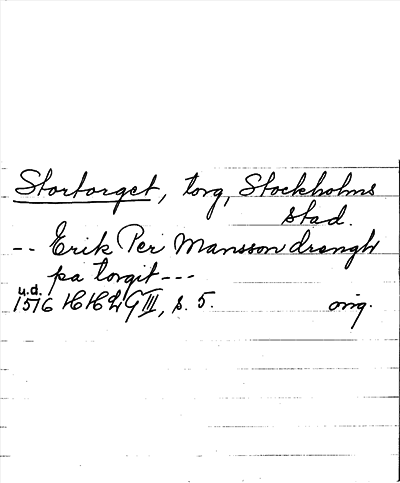 Stortorget, torg, Stockholms
stad.
-- Erik Per Mansson drengh
pa torgit ---
u.d.
1516 HHLG III, s. 5. orig.